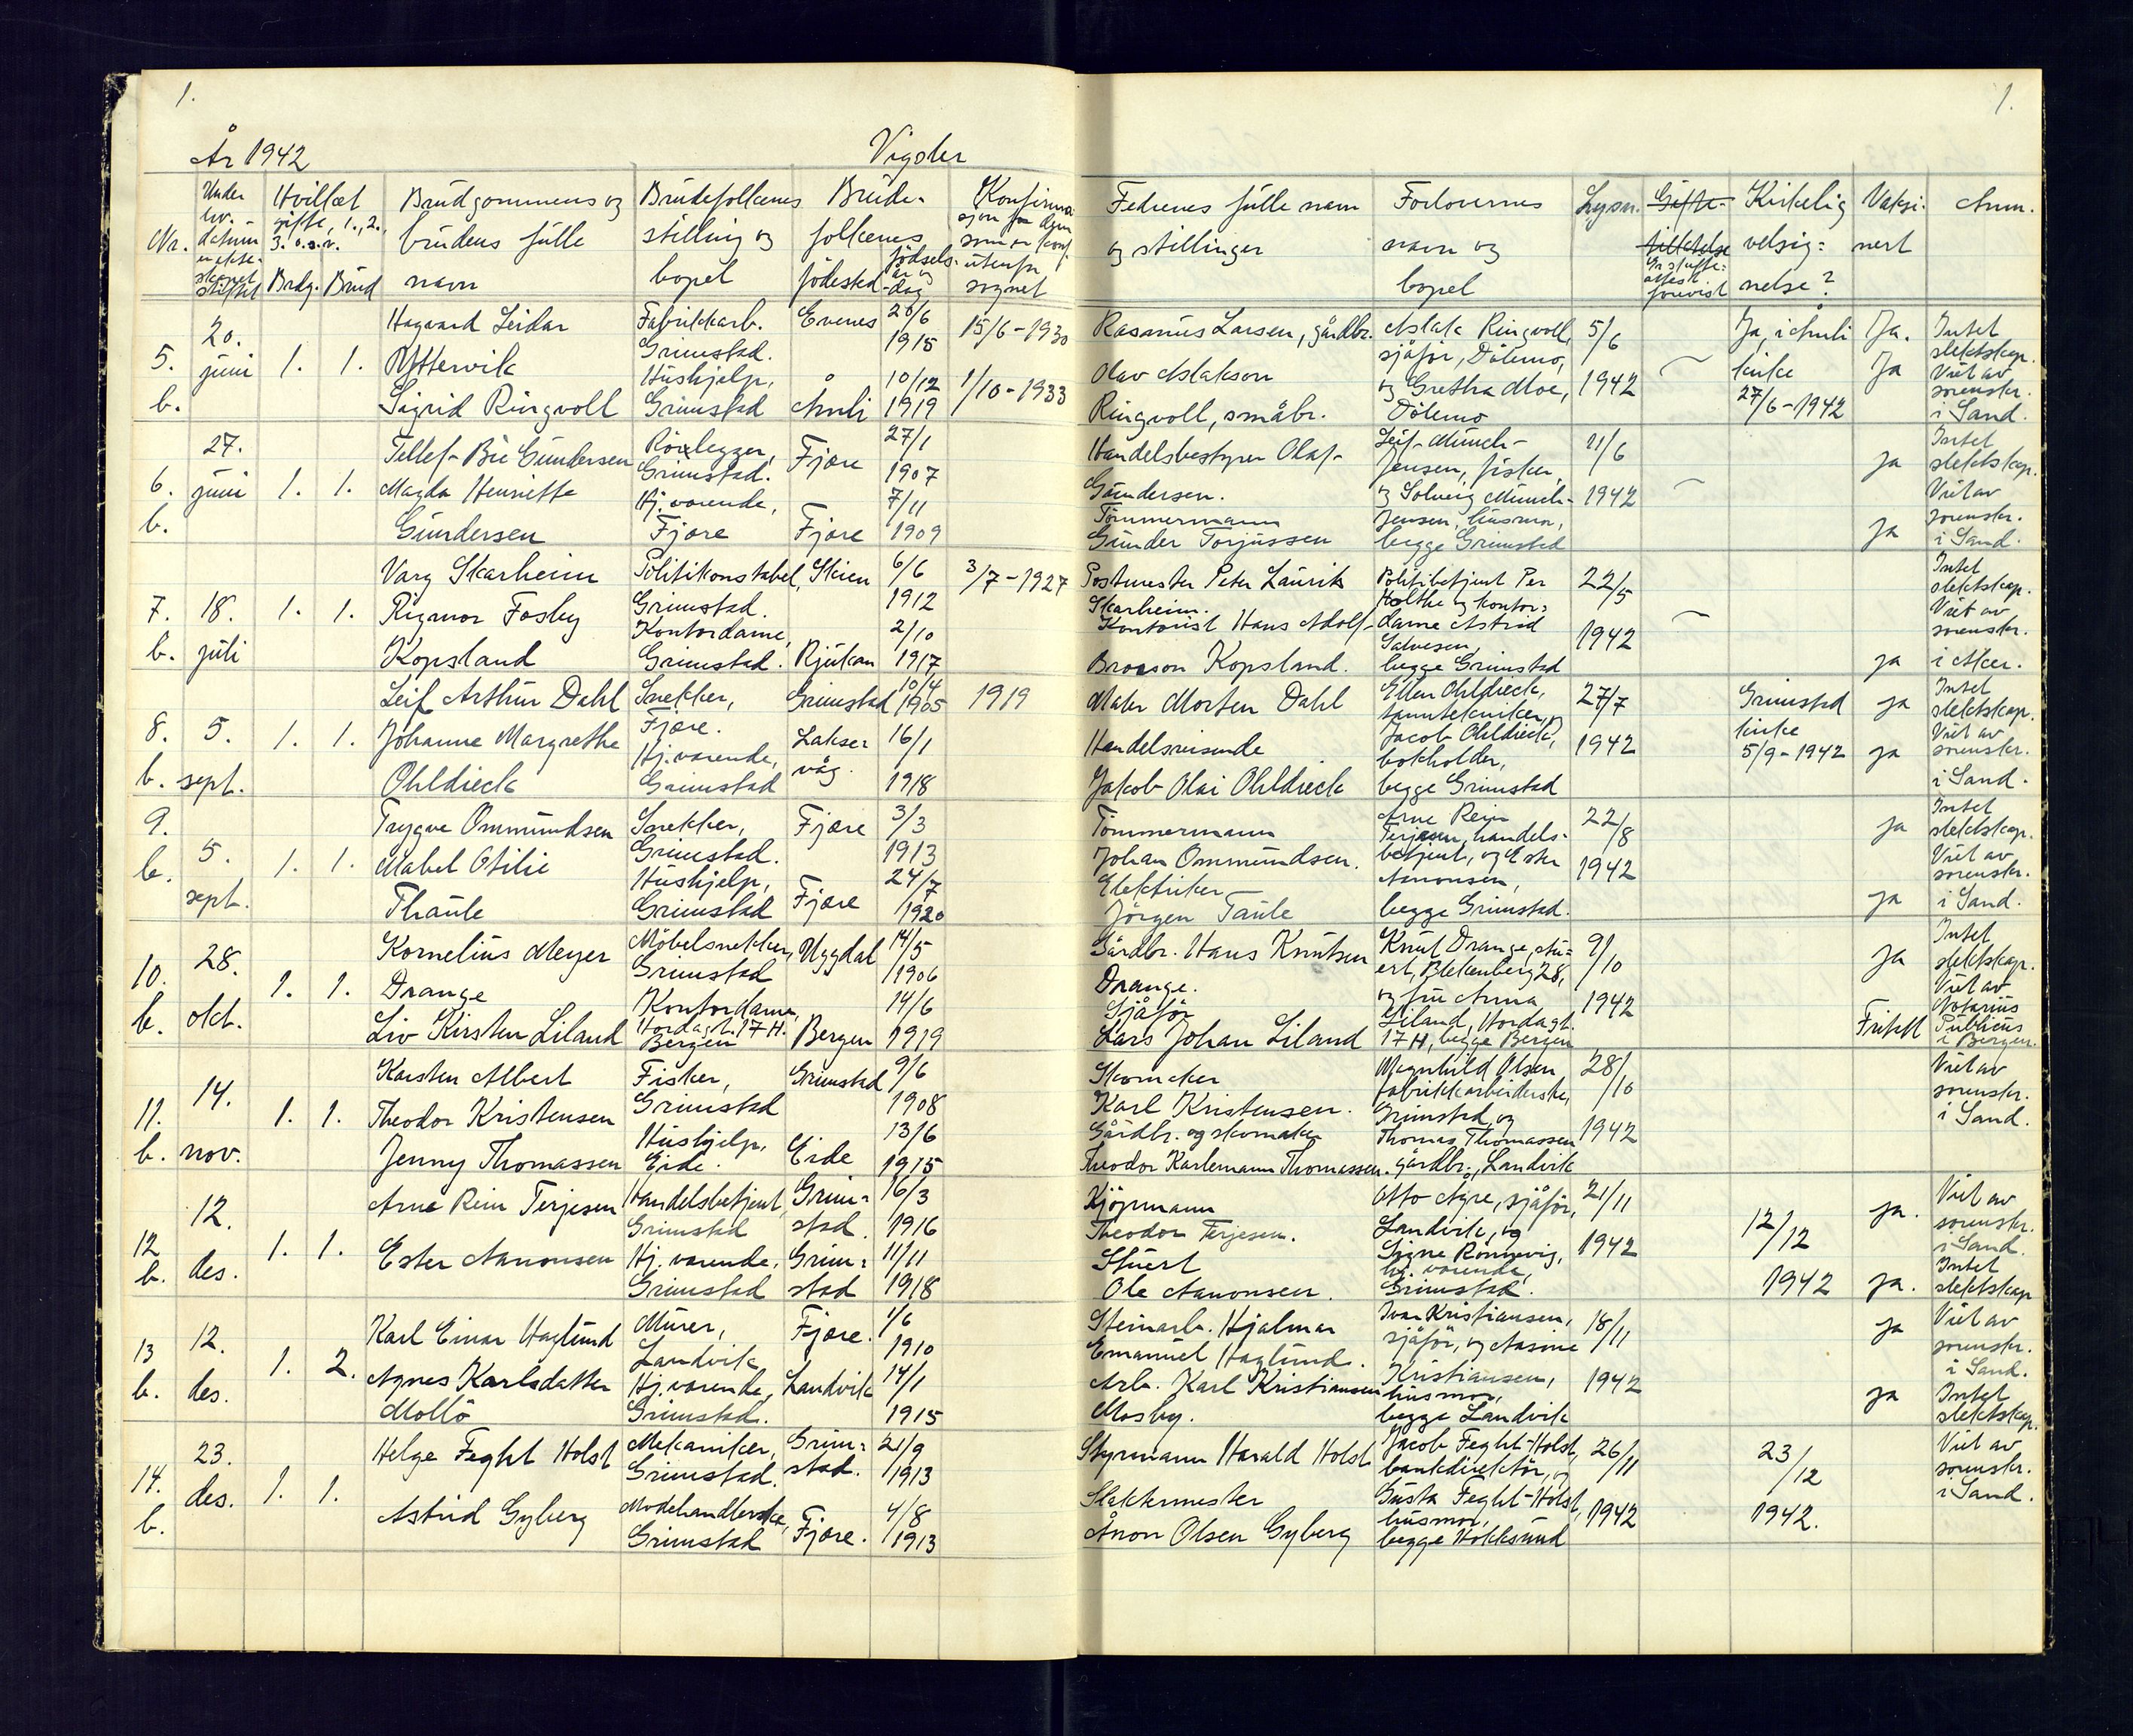 1.
År 1942
Vigsler
Nr.
Under lov.-datum
Hvilket gifte, 1., 2., 3. o.s.v.
Brdg. Brud
Brudgommens og brudens fulle navn
Brudefolkenes stilling og bopel
Brude-folkenes fødested
fødsels-år og -dag
Konfirmasjon for dem som er konf. utenfor sognet
5. b.
20. juni
1. 1.
Hagvard Leidar
Yttervik
Sigrid Ringvoll
Fabrikkarb.
Grimstad.
Hushjelp,
Grimstad
Evenes
Åmli
20/6 1915
10/12 1919
15/6-1930
1/10-1933
6. b.
27. juni
1. 1.
Tellef-Bie Gundersen
Magda Henriette
Gundersen
Rørlegger,
Grimstad.
Hj. værende,
Fjære
Fjære
Fjære
27/1 1907
7/11 1909
7. b.
18. juli
1. 1.
Varg Skarheim
Rigmor Fosby
Kopsland
Politikonstabel,
Grimstad.
Kontordame,
Grimstad.
Skien
Rjukan
6/6 1912
2/10 1917
3/7-1927
8. b.
5. sept.
1. 1.
Leif Arthur Dahl
Johanne Margrethe
Ohldieck
Snekker,
Fjære.
Hj. værende,
Grimstad
Grimstad
Lakse-
våg.
10/4 1905
16/1 1918
1919
9. b.
5. sept.
1. 1.
Trygve Ommundsen
Mabel Otilie
Thaule
Snekker,
Grimstad.
Hushjelp,
Grimstad
Fjære
Fjære
3/3 1913
24/7 1920
10. b.
28. okt.
1. 1.
Kornelius Meyer
Drange
Liv Kirsten Liland
Møbelsnekker,
Grimstad
Kontordame,
Hordagt. 17 H.
Bergen
Uggdal
Bergen
14/5 1906
14/6 1919
11. b.
14. nov.
1. 1.
Karsten Albert
Theodor Kristensen
Jenny Thomassen
Fisker,
Grimstad
Hushjelp,
Eide.
Grimstad
Eide
9/6 1908
13/6 1915
12 b.
12. des.
1. 1.
Arne Rein Terjesen
Ester Aanonsen
Handelsbetjent,
Grimstad
Hj. værende,
Grimstad
Grim-
stad.
Grim-
stad
16/3 1916
11/11 1918
13 b.
12. des.
1. 2.
Karl Einar Haglund
Agnes Karlsdatter
Mollö
Murer,
Landvik
Hj. værende,
Grimstad.
Fjære.
Landvik
1/6 1910
14/1 1915
14. b.
23. des.
1. 1.
Helge Feght Holst
Astrid Gyberg
Mekaniker,
Grimstad.
Motehandlerske,
Grimstad
Grim-
stad.
Fjære.
21/9 1913
4/8 1913
1.
Fedrenes fulle navn og stillinger
Forlovernes navn og bopel
Lysn.
Gifte-tillatelse
Kirkelig velsig-nelse?
Vaksi-nert
Anm.
Rasmus Larsen, gårdbr.
Olav Aslakson
Ringvoll, småbr.
Aslak Ringvoll,
sjåfør, Dölemo,
og Gretha Moe,
Dölemo
5/6 1942
Ja, i Åmli
kirke
27/6-1942
Ja.
Ja
Intet
slektskap.
Viet av
sorenskr.
i Sand.
Handelsbestyrer Olaf
Gundersen.
Tömmermann
Gunder Torjussen
Leif-Munch-
Jensen, fisker,
og Solveig Munch-
Jensen, husmor,
begge Grimstad
11/6 1942
ja
ja
Intet
slektskap.
Viet av
sorenskr.
i Sand.
Postmester Peter Laurits
Skarheim.
Kontorist Hans Adolf
Broxson Kopsland.
Politibetjent Per
Holthe og kontor-
dame Astrid
Salvesen,
begge Grimstad
22/5 1942
ja
Intet
slektskap.
Viet av
sorenskr.
i Aker.
Maler Morten Dahl
Handelsreisende
Jakob Olai Ohldieck
Ellen Ohldieck,
tanntekniker, og
Jacob Ohldieck,
bokholder,
begge Grimstad
27/7 1942
Grimstad
kirke
5/9-1942
ja
ja
Intet
slektskap.
Viet av
sorenskr.
i Sand.
Tömmermann
Johan Ommundsen.
Elektriker
Jörgen Taule
Arne Rein
Terjesen, handels-
betjent, og Ester
Aanonsen,
begge Grimstad.
22/8 1942
ja
ja
Intet
slektskap.
Viet av
sorenskr.
i Sand.
Gårdbr. Hans Knutsen
Drange.
Sjåför
Lars Johan Liland
Knut Drange, stu-
ert, Blekenberg 28,
og fru Anna
Liland, Hordagt.
17 H, begge Bergen
9/10 1942
ja
Fritatt
Intet
slektskap.
Viet av
Notarius
Publicus
i Bergen.
Skomaker
Karl Kristensen.
Gårdbr. og skomaker
Theodor Karlemann Thomassen.
Magnhild Olsen,
fabrikkarbeiderske,
Grimstad, og
Thomas Thomassen
gårdbr., Landvik
28/10 1942
Viet av
sorenskr.
i Sand.
Kjöpmann
Theodor Terjesen.
Stuert
Ole Aanonsen.
Otto Agre, sjåför,
Landvik, og
Signe Rönnevig,
hj. værende,
Grimstad.
21/11 1942
12/12 1942
ja.
ja.
Viet av
sorenskr.
i Sand.
Intet
slektskap
Steinarb. Hjalmar
Emanuel Haglund.
Arb. Karl Kristiansen
Mosby.
Ivar Kristiansen,
sjåför, og Aasine
Kristiansen,
husmor,
begge Landvik
18/11 1942
ja
ja
Viet av
sorenskr.
i Sand.
Intet
slektskap.
Styrmann Harald Holst
Slaktermester
Ånon Olsen Gyberg
Jacob Feght-Holst,
bankdirektör, og
Gusta Feght-Holst,
husmor,
begge Hokksund
26/11 1942
23/12 1942.
Viet av
sorenskr.
i Sand.